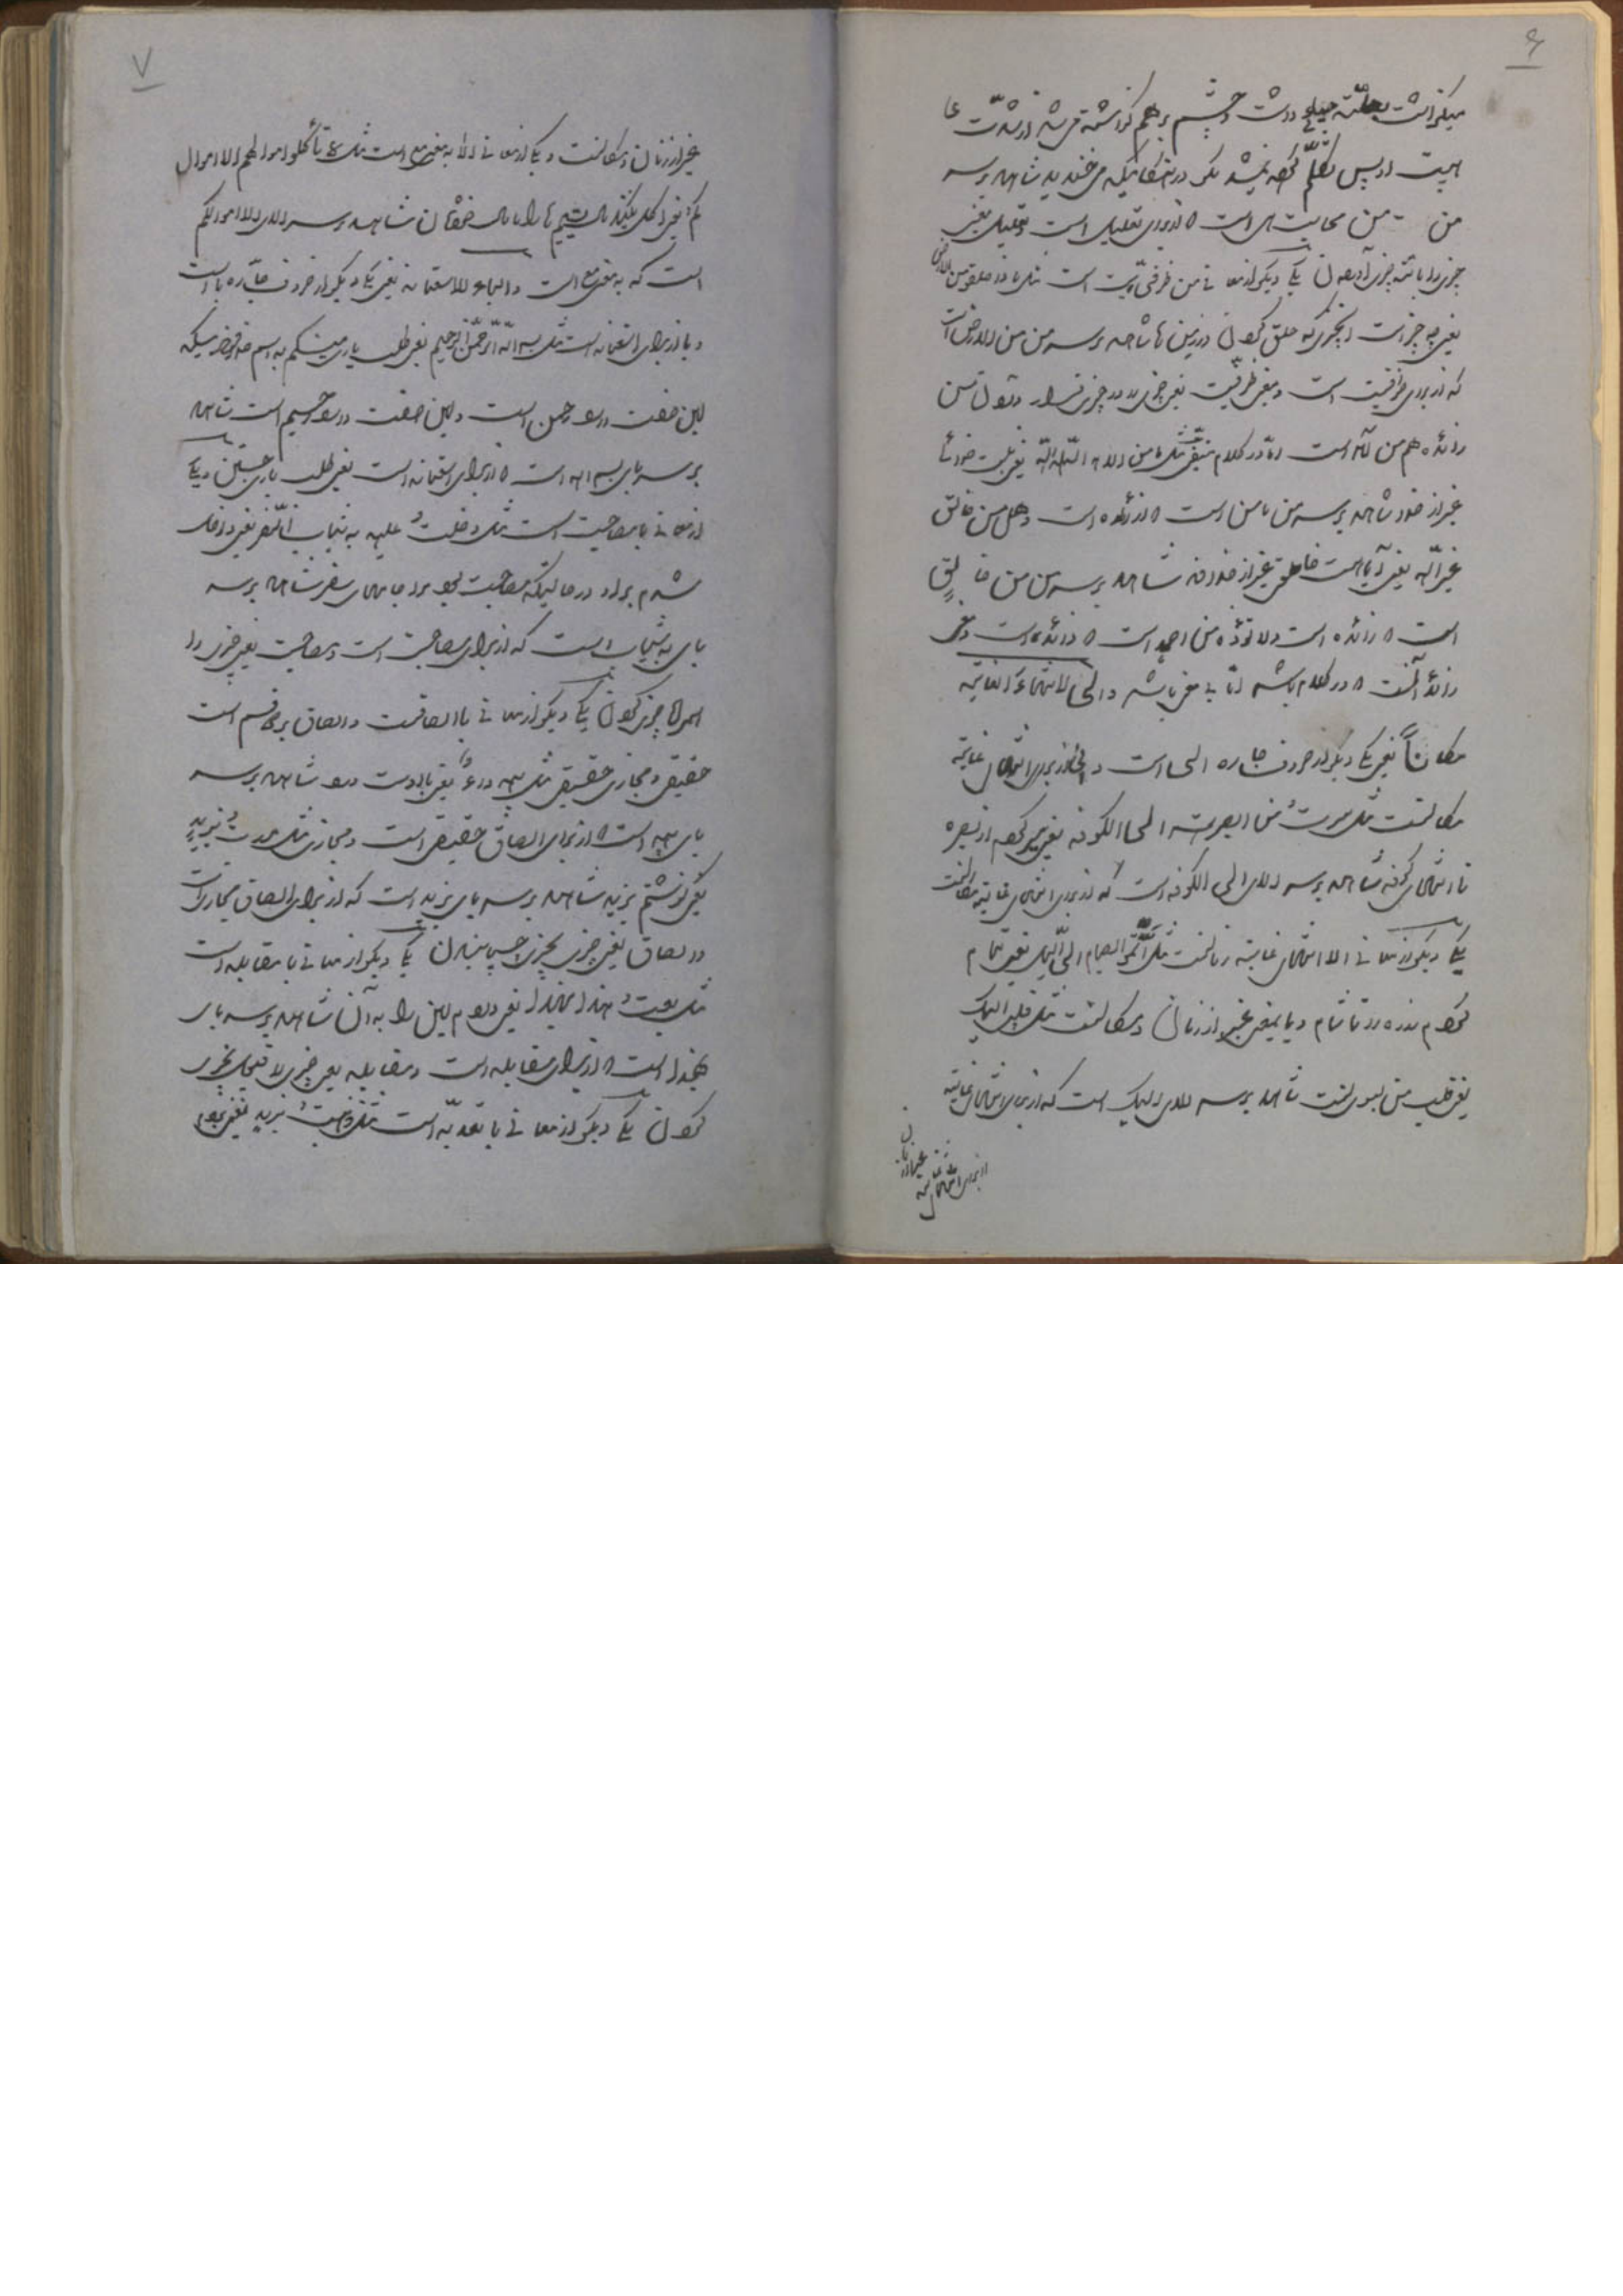 ۶
میگذاشت بعلت حیا داشت و چشم بر هم گذاشته میشد از شدت
هیبت او پس تکلم کرده نمیشد مگر در هنگامیکه می خندید شاهد بر سر
من من مهابت است که از برای تعلیل است و تعلیل یعنی
چیزی را بعلت چیزی آوردن یکی دیگر از معانی من ظرفیت است مثل ماذا خلقوا من الارض
یعنی چه چیز است آنچیزی که خلق کردن در زمین ها شاهد بر سر من من الارض است
که از برای ظرفیت است و معنی ظرفیت یعنی چیزی را در چیزی قرار دادن من
زائده هم من آمده است اما در کلام منفی مثل ما من اله الا الله یعنی نیست خدائی
غیر از خدا شاهد بر سر من ما من است که زائده است و هل من خالق
غیر الله یعنی آیا هست خالقی غیر از خدا نه شاهد بر سر من من خالق
است که زائده است و لا تؤذ من احد است که زائده است و معنی
زائد آنست که در کلام باشد اما بی معنی باشد و الی لانتهاء الغایة
مکاناً یعنی یکی دیگر از حروف جاره الی است و الی از برای انتهای غایة
مکانست مثل سرت من البصرة الی الکوفه یعنی سیر کردم از بصره
تا انتهای کوفه شاهد بر سر الای الی الکوفه است که از برای انتهای غایة مکانست
یکی دیگر از معانی الا انتهای غایة زمانست مثل اتموا الصیام الی اللیل یعنی تمام
کردم روزه را تا شام و یا بمعنی غیر از زمان و مکانست مثل قلبی الیک
یعنی قلب من بسوی تست شاهد بر سر الای الیک است که از برای انتهای غایة
از برای انتهای غایة
غیر از زمان
۷
غیر از زمان و مکانست و یکی از معانی الا به معنی مع است مثل لا تأکلوا اموالهم الا اموال
کم یعنی اکل نکنید مال یتیم ها را با مال خودتان شاهد بر سر الای الا اموالکم
است که به معنی مع است و الباء للاستعانه یعنی یکی دیگر از حروف جاره با است
و با از برای استعانه است مثل بسم الله الرحمن الرحیم یعنی طلب یاری میکنم به اسم خداوندیکه
این صفت دارد رحمن است و این صفت دارد رحیم است شاهد
بر سر بای بسم الله است که از برای استعانه است یعنی طلب یاری جستن و یکی
از معانی با مصاحبت است مثل دخلت علیه به ثیاب السفر یعنی داخل
شدم بر او در حالیکه مصاحبت بود مرا جامهای سفر شاهد بر سر
بای به ثیاب است که از برای مصاحبت است و مصاحبت یعنی چیزی را
همراه چیزی کردن یکی دیگر از معانی با الصاقست و الصاق بر دو قسم است
حقیقی و مجازی حقیقی مثل به داء یعنی با اوست درد شاهد بر سر
بای به است که از برای الصاق حقیقی است و مجازی مثل مررت بزید
یعنی گذشتم بزید شاهد بر سر بای بزید است که از برای الصاق مجازی است
و الصاق یعنی چیزی بچیزی چسبانیدن یکی دیگر از معانی با مقابله است
مثل بعت هذا بهذا یعنی دادم این را به آن شاهد بر سر بای
بهذا است که از برای مقابله است و مقابله یعنی چیزی را قیمت چیزی
کردن یکی دیگر از معانی با تعدیه است مثل ذهبت بزید یعنی بردم